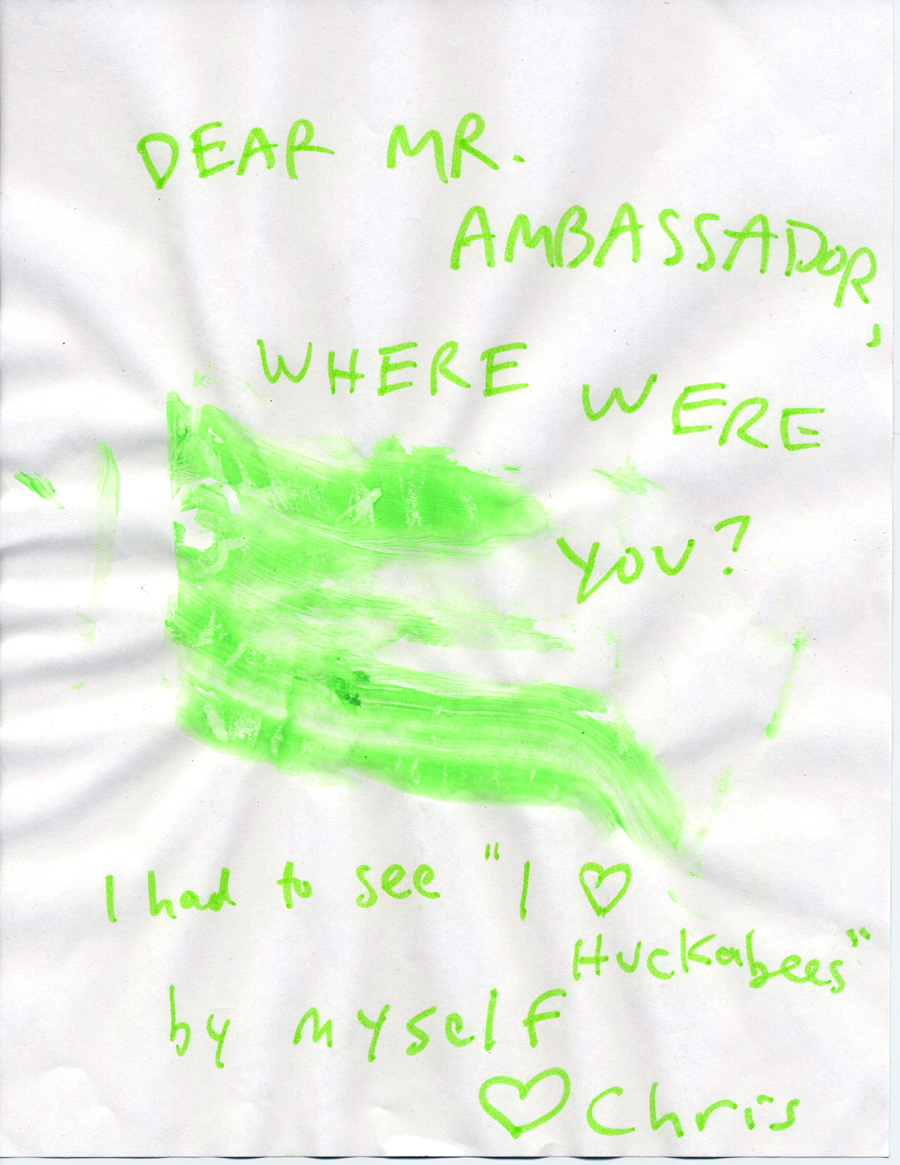 DEAR MR.
AMBASSADOR,
WHERE WERE
YOU?
I had to see "I ♡
Huckabees"
by myself
♡ Chris